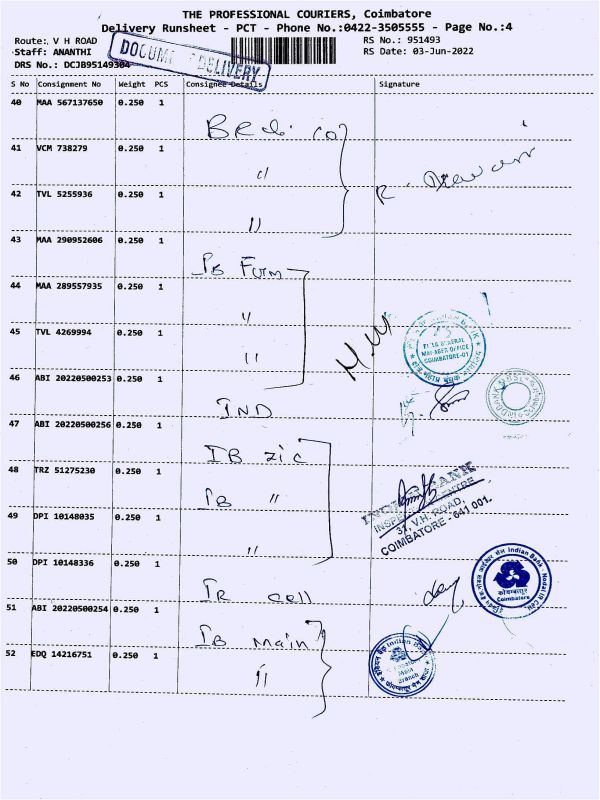 THE PROFESSIONAL COURIERS, Coimbatore
Delivery Runsheet - PCT - Phone No.:0422-3505555 - Page No.:4
Route: V H ROAD
RS No.: 951493
Staff: ANANTHI
RS Date: 03-Jun-2022
DRS No.: DCJB95149304
DOCUMENT DELIVERY
S No Consignment No Weight PCS Consignee Details Signature
40 MAA 567137650 0.250 1
41 VCM 738279 0.250 1 "
42 TVL 5255936 0.250 1 "
43 MAA 290952606 0.250 1
44 MAA 289557935 0.250 1 "
45 TVL 4269994 0.250 1 "
MANAGER OFFICE
COIMBATORE-01
46 ABI 20220500253 0.250 1 IND
47 ABI 20220500256 0.250 1 IB
48 TRZ 51275230 0.250 1 IB "
49 DPI 10148035 0.250 1 "
INDIAN BANK
37, V.H. ROAD,
COIMBATORE - 641 001.
50 DPI 10148336 0.250 1 cell
Indian Bank
कोयम्बतूर
Coimbatore
51 ABI 20220500254 0.250 1 IB main
52 EDQ 14216751 0.250 1 "
Indian Bank
Main
Branch